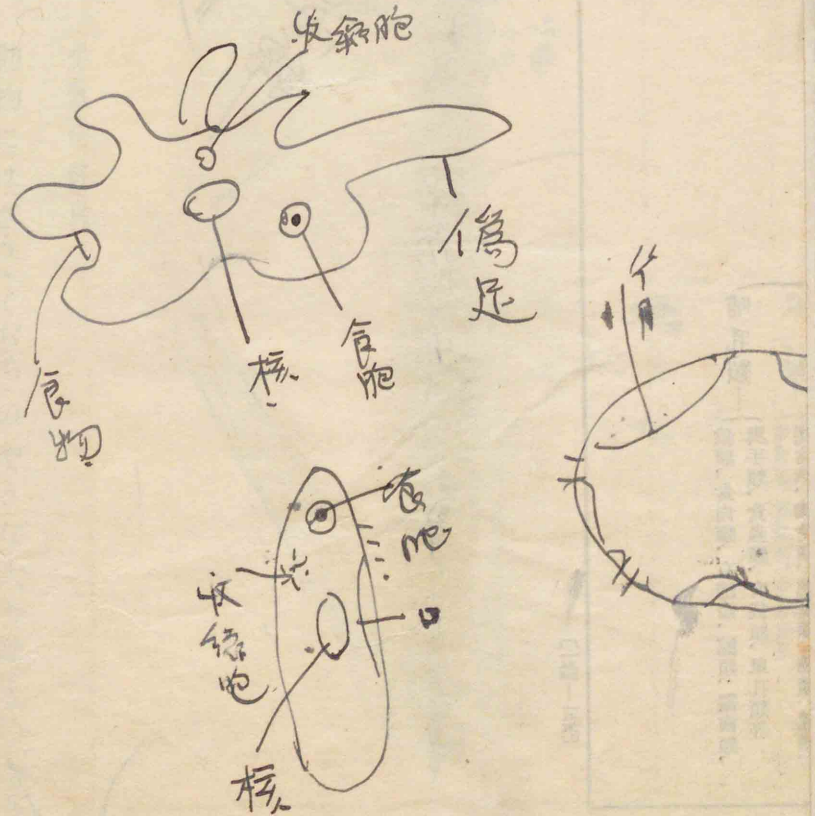 收縮胞
偽足
食物
核
食胞
食胞
收縮胞
口
核